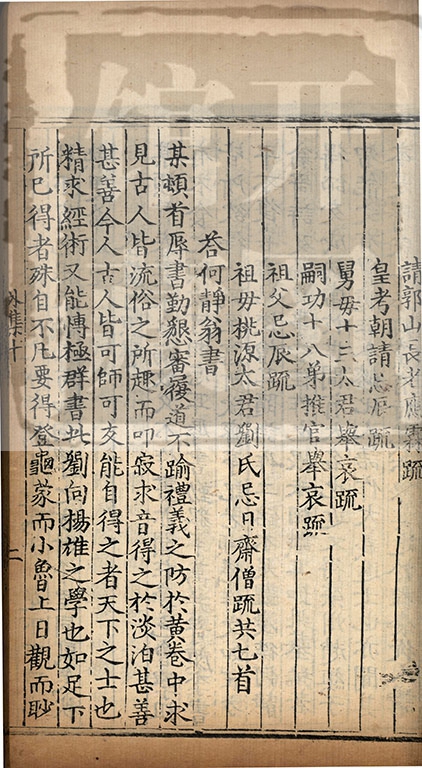 請郭山長老應霖疏
皇考朝請忌辰疏
舅毋十三太君舉哀疏
嗣功十八弟推官舉哀疏
祖父忌辰疏
祖毋桃源太君劉氏忌日齋僧疏共七首
荅何靜翁書
某頓首辱書勤懇審履道不踰禮義之防於黄卷中求
見古人皆流俗之所趣而叩寂求音得之於淡泊甚善
甚善今人古人皆可師可友能自得之者天下之士也
精求經術又能愽極群書此劉向揚雄之學也如足下
所巳得者殊自不凡要得登龜蒙而小魯上日觀而眇
外集十
二